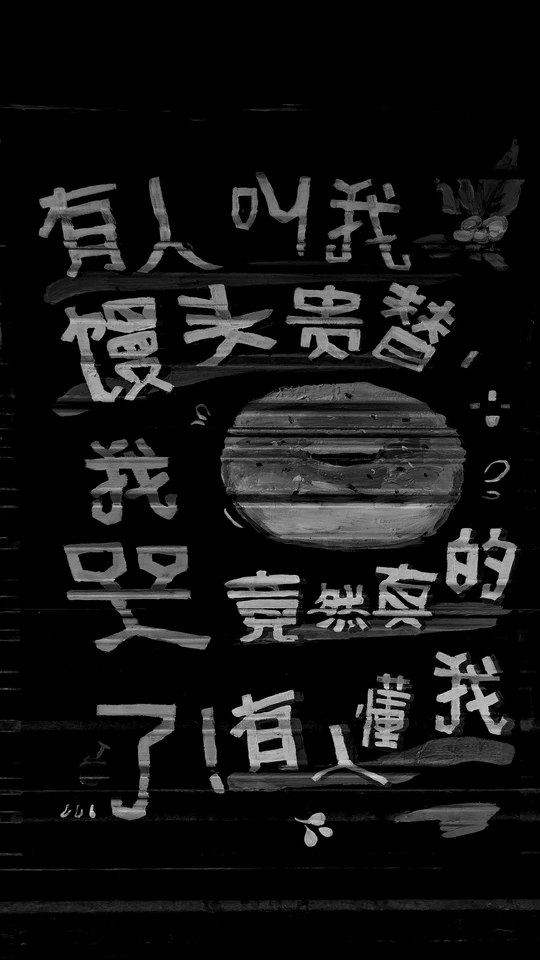 有人叫我
馒头贵替
我
哭
竟然真的
了!有人懂我